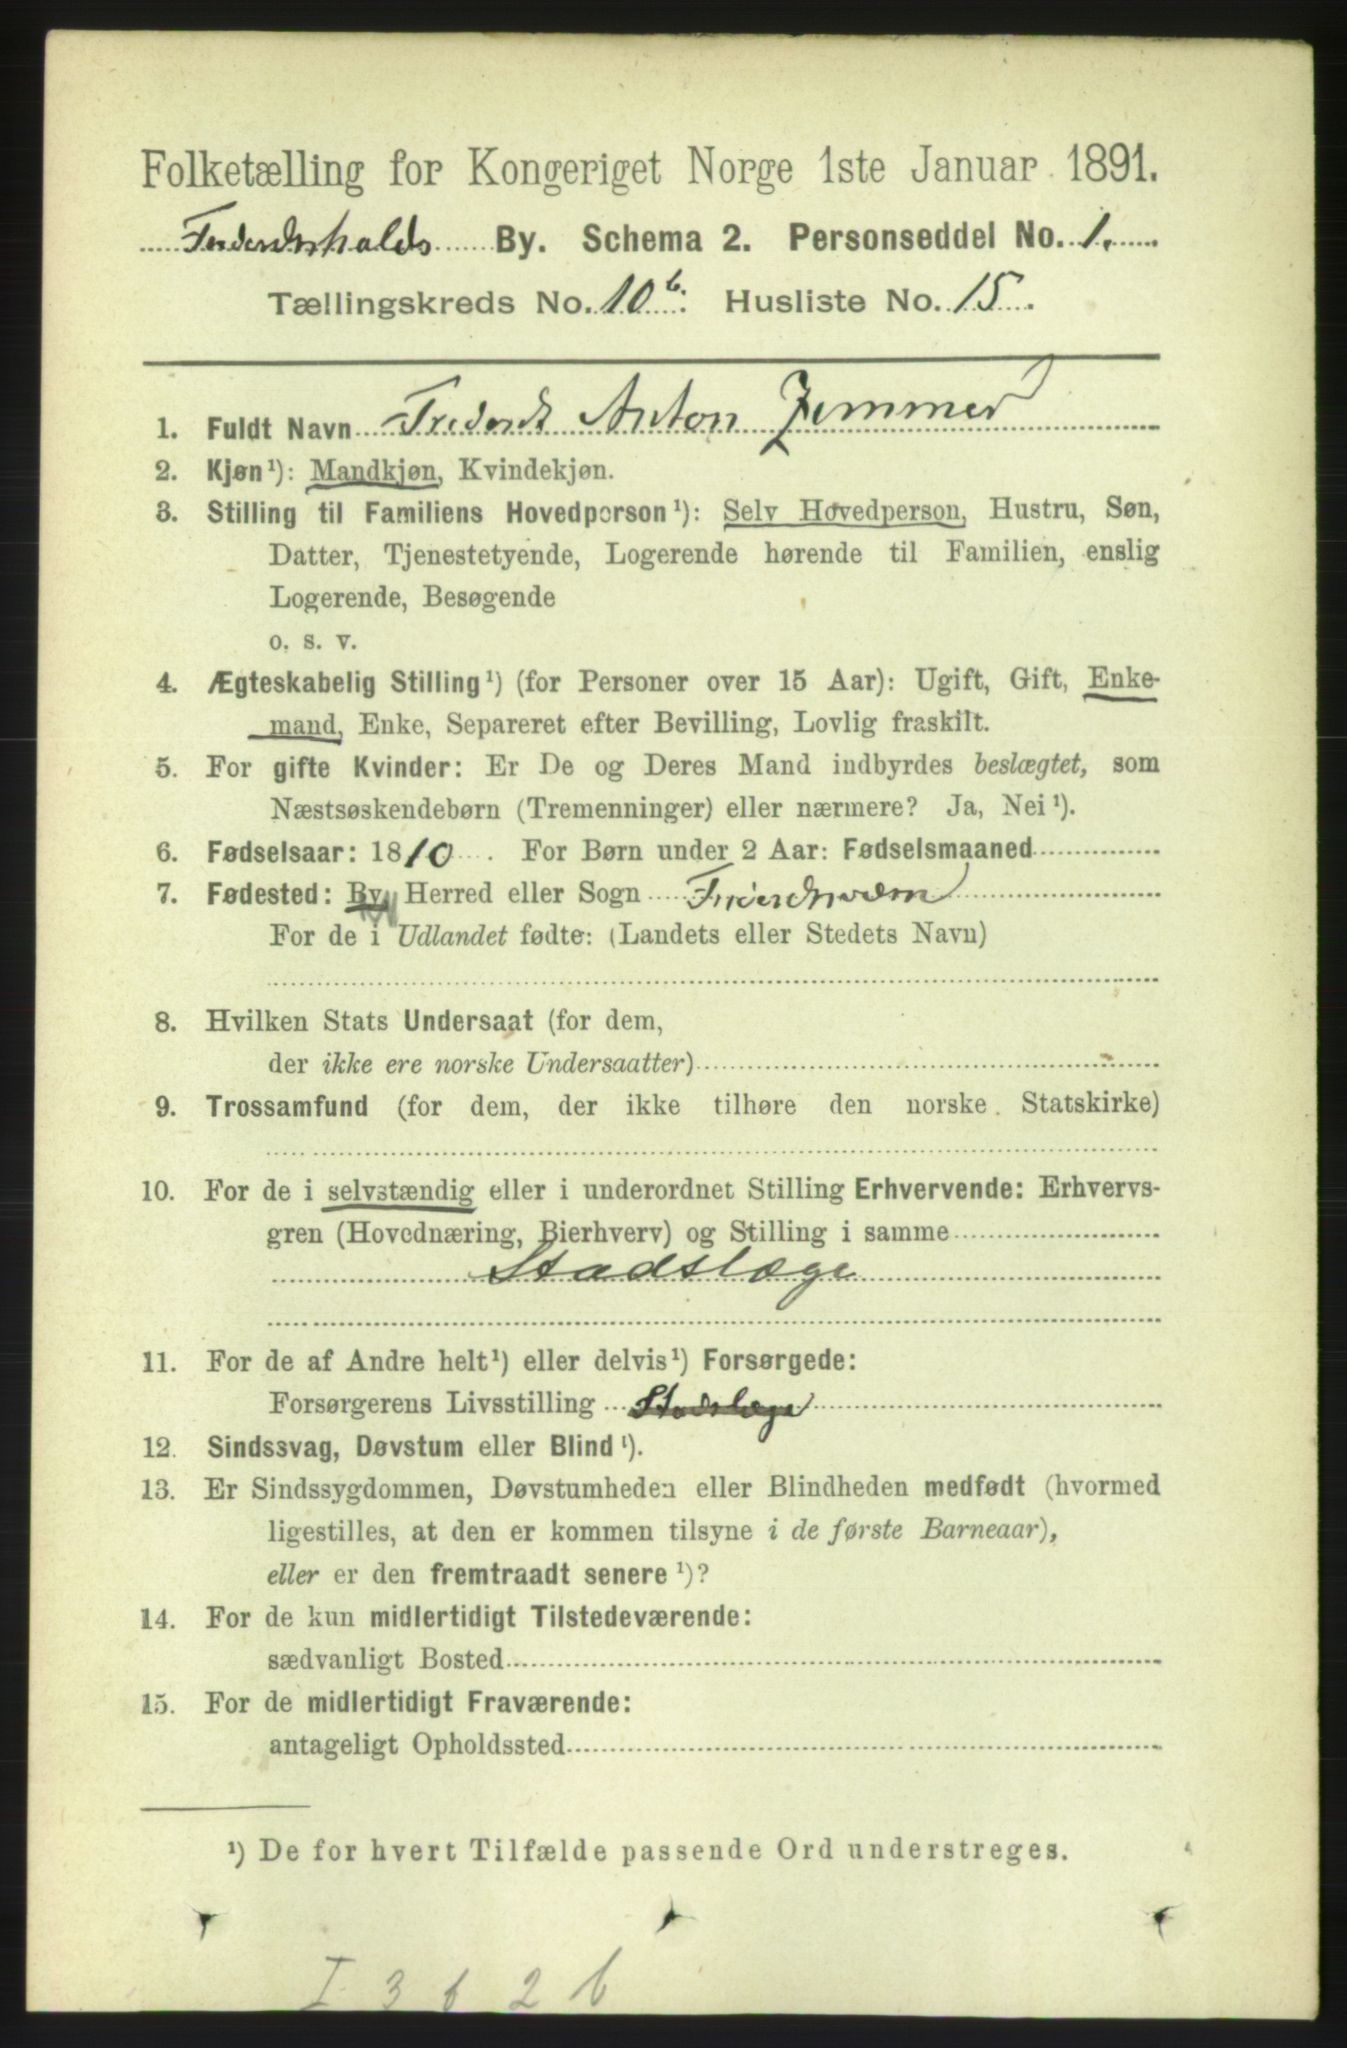 Folketælling for Kongeriget Norge 1ste Januar 1891.
Frederikshalds By. Schema 2. Personseddel No. 1.
Tællingskreds No. 10b. Husliste No. 15.
1. Fuldt Navn Frederik Anton Zimmer
2. Kjøn¹): Mandkjøn, Kvindekjøn.
3. Stilling til Familiens Hovedperson¹): Selv Hovedperson, Hustru, Søn,
Datter, Tjenestetyende, Logerende hørende til Familien, enslig
Logerende, Besøgende
o. s. v.
4. Ægteskabelig Stilling¹) (for Personer over 15 Aar): Ugift, Gift, Enke-
mand, Enke, Separeret efter Bevilling, Lovlig fraskilt.
5. For gifte Kvinder: Er De og Deres Mand indbyrdes beslægtet, som
Næstsøskendebørn (Tremenninger) eller nærmere? Ja, Nei¹).
6. Fødselsaar: 1810. For Børn under 2 Aar: Fødselsmaaned
7. Fødested: By, Herred eller Sogn Frederiksværn
For de i Udlandet fødte: (Landets eller Stedets Navn)
8. Hvilken Stats Undersaat (for dem,
der ikke ere norske Undersaatter)
9. Trossamfund (for dem, der ikke tilhøre den norske Statskirke)
10. For de i selvstændig eller i underordnet Stilling Erhvervende: Erhvervs-
gren (Hovednæring, Bierhverv) og Stilling i samme
Stadslæge
11. For de af Andre helt¹) eller delvis¹) Forsørgede:
Forsørgerens Livsstilling Stadslæge
12. Sindssvag, Døvstum eller Blind¹).
13. Er Sindssygdommen, Døvstumheden eller Blindheden medfødt (hvormed
ligestilles, at den er kommen tilsyne i de første Barneaar),
eller er den fremtraadt senere¹)?
14. For de kun midlertidigt Tilstedeværende:
sædvanligt Bosted
15. For de midlertidigt Fraværende:
antageligt Opholdssted
¹) De for hvert Tilfælde passende Ord understreges.
I 3 6 2 6